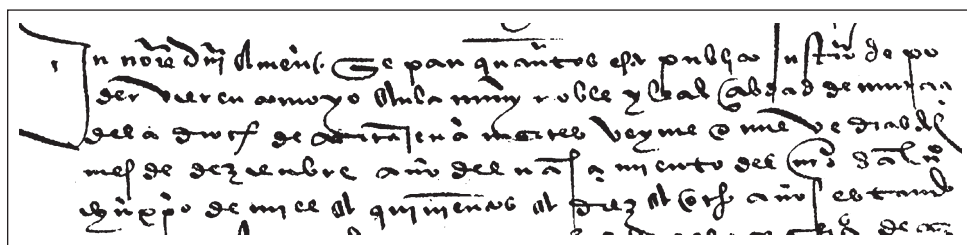 In noīe dnī amen. Sepan quantos este publico instrūo de po
der vieren como yo en la muy noble y leal çibdad de murçia
dela dioçs de cartajena martes veynte e nueve dias del
mes de dezienbre año del nasçimiento del
ihū xpō de mill e quinientos e diez e ocho años estando